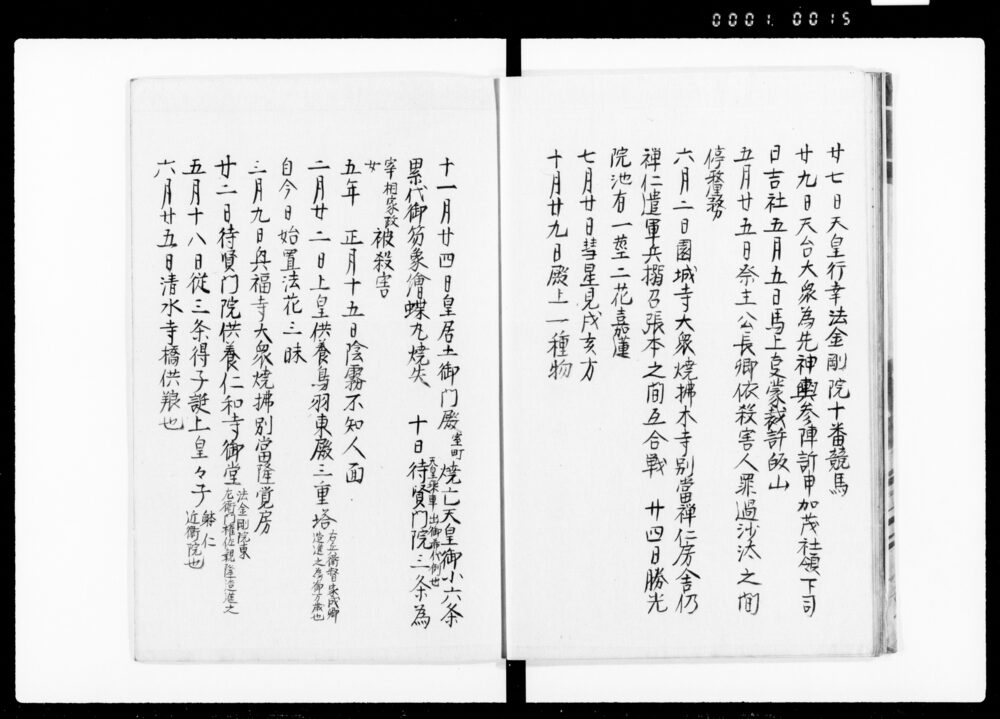 0001 0015
廿七日天皇行幸法金剛院十番競馬
廿九日天台大衆為先神輿参陣訴申加茂社領下司
日吉社五月五日馬上支蒙裁許皈山
五月廿五日祭主公長卿依殺害人罪過沙汰之間
停釐務
六月二日園城寺大衆焼拂木寺別當禅仁房舎仍
禅仁遣軍兵搦召張本之間互合戦 廿四日勝光
院池有一莖二花嘉蓮
七月廿日彗星見戌亥方
十月廿九日殿上一種物
十一月廿四日皇居土御门殿室町焼亡天皇御小六条
天皇乗車出御希代例也
累代御笏象繪蝶丸焼失 十日待賢门院三条為
女宰相家政被殺害
五年 正月十五日陰霧不知人面
二月廿二日上皇供養鳥羽東殿三重塔右兵衛督家成卿造進之為御万歳也
自今日始置法花三昧
三月九日興福寺大衆焼拂別當隆覚房
廿二日待賢门院供養仁和寺御堂法金剛院東左衛门権佐親隆造進之
五月十八日従三条得子誕上皇々子躰仁近衛院也
六月廿五日清水寺橋供養也